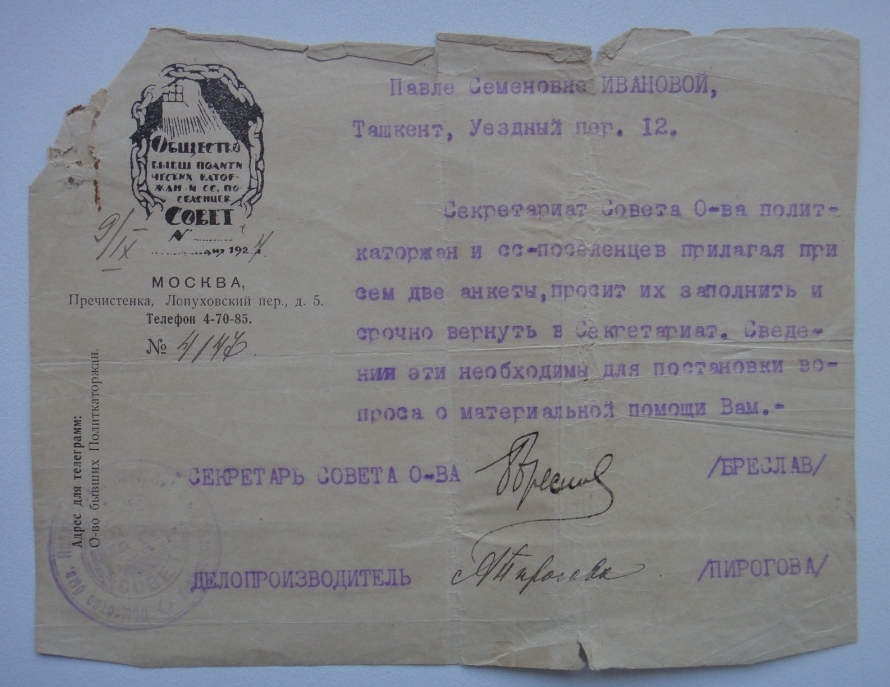 Общество
бывш полити
ческих катор-
жан и сс. по-
селенцев
Совет
9/IX 1927
МОСКВА,
Пречистенка, Лопуховский пер., д. 5.
Телефон 4-70-85.
№ 4147.
Адрес для телеграмм:
О-во бывших Политкаторжан.
Павле Семеновне ИВАНОВОЙ,
Ташкент, Уездный пер. 12.
Секретариат Совета О-ва полит-
каторжан и сс-поселенцев прилагая при
сем две анкеты, просит их заполнить и
срочно вернуть в Секретариат. Сведе-
ния эти необходимы для постановки во-
проса о материальной помощи Вам.-
СЕКРЕТАРЬ СОВЕТА О-ВА Бреслав /БРЕСЛАВ/
ДЕЛОПРОИЗВОДИТЕЛЬ А Пирогова /ПИРОГОВА/
СОВЕТ